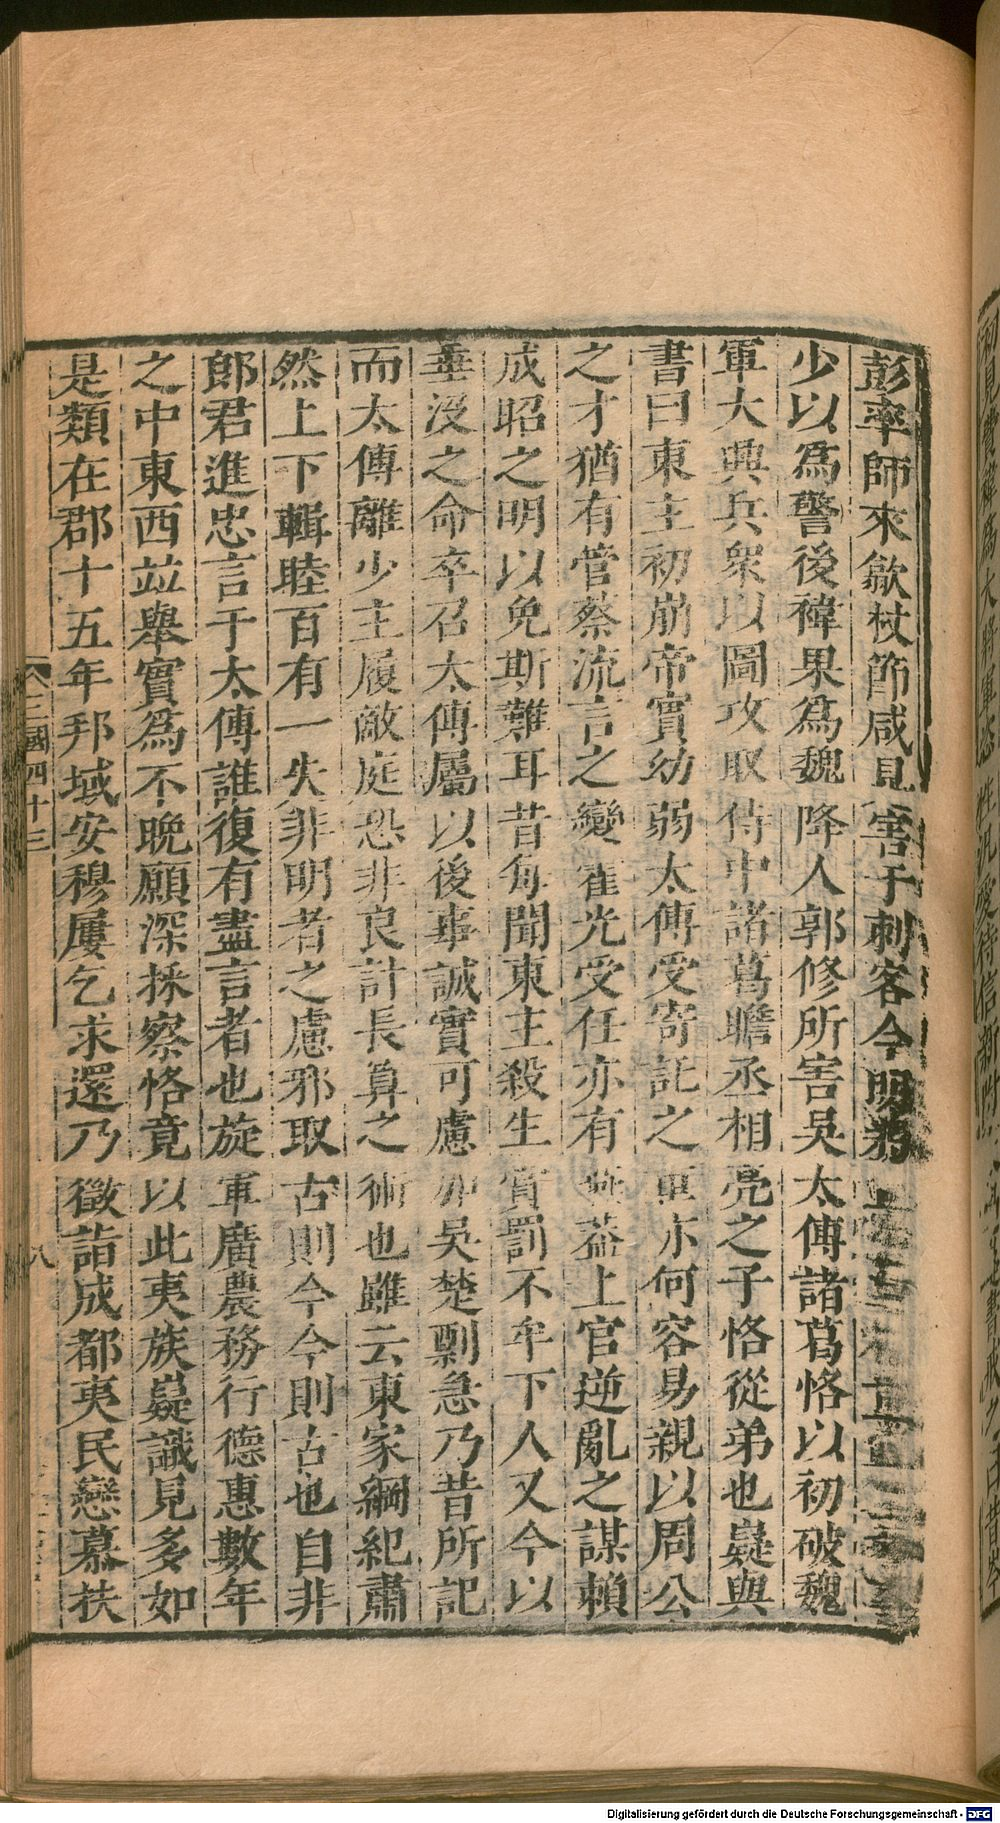 彭率師來歙杖節咸見害于刺客今明
少以爲警後禕果爲魏降人郭修所害吳太傅諸葛恪以初破魏
軍大興兵衆以圖攻取侍中諸葛瞻丞相亮之子恪從弟也嶷與
書曰東主初崩帝實幼弱太傅受寄託之重亦何容易親以周公
之才猶有管蔡流言之變霍光受任亦有燕蓋上官逆亂之謀賴
成昭之明以免斯難耳昔每聞東主殺生賞罰不牟下人又今以
垂沒之命卒召太傅屬以後事誠實可慮加吳楚剽急乃昔所記
而太傅離少主履敵庭恐非良計長算之術也雖云東家綱紀肅
然上下輯睦百有一失非明者之慮邪取古則今今則古也自非
郎君進忠言于太傅誰復有盡言者也旋軍廣農務行德惠數年
之中東西竝舉實爲不晚願深採察恪竟以此夷族嶷識見多如
是類在郡十五年邦域安穆屢乞求還乃徵詣成都夷民戀慕扶
三國四十三
八
Digitalisierung gefördert durch die Deutsche Forschungsgemeinschaft - DFG